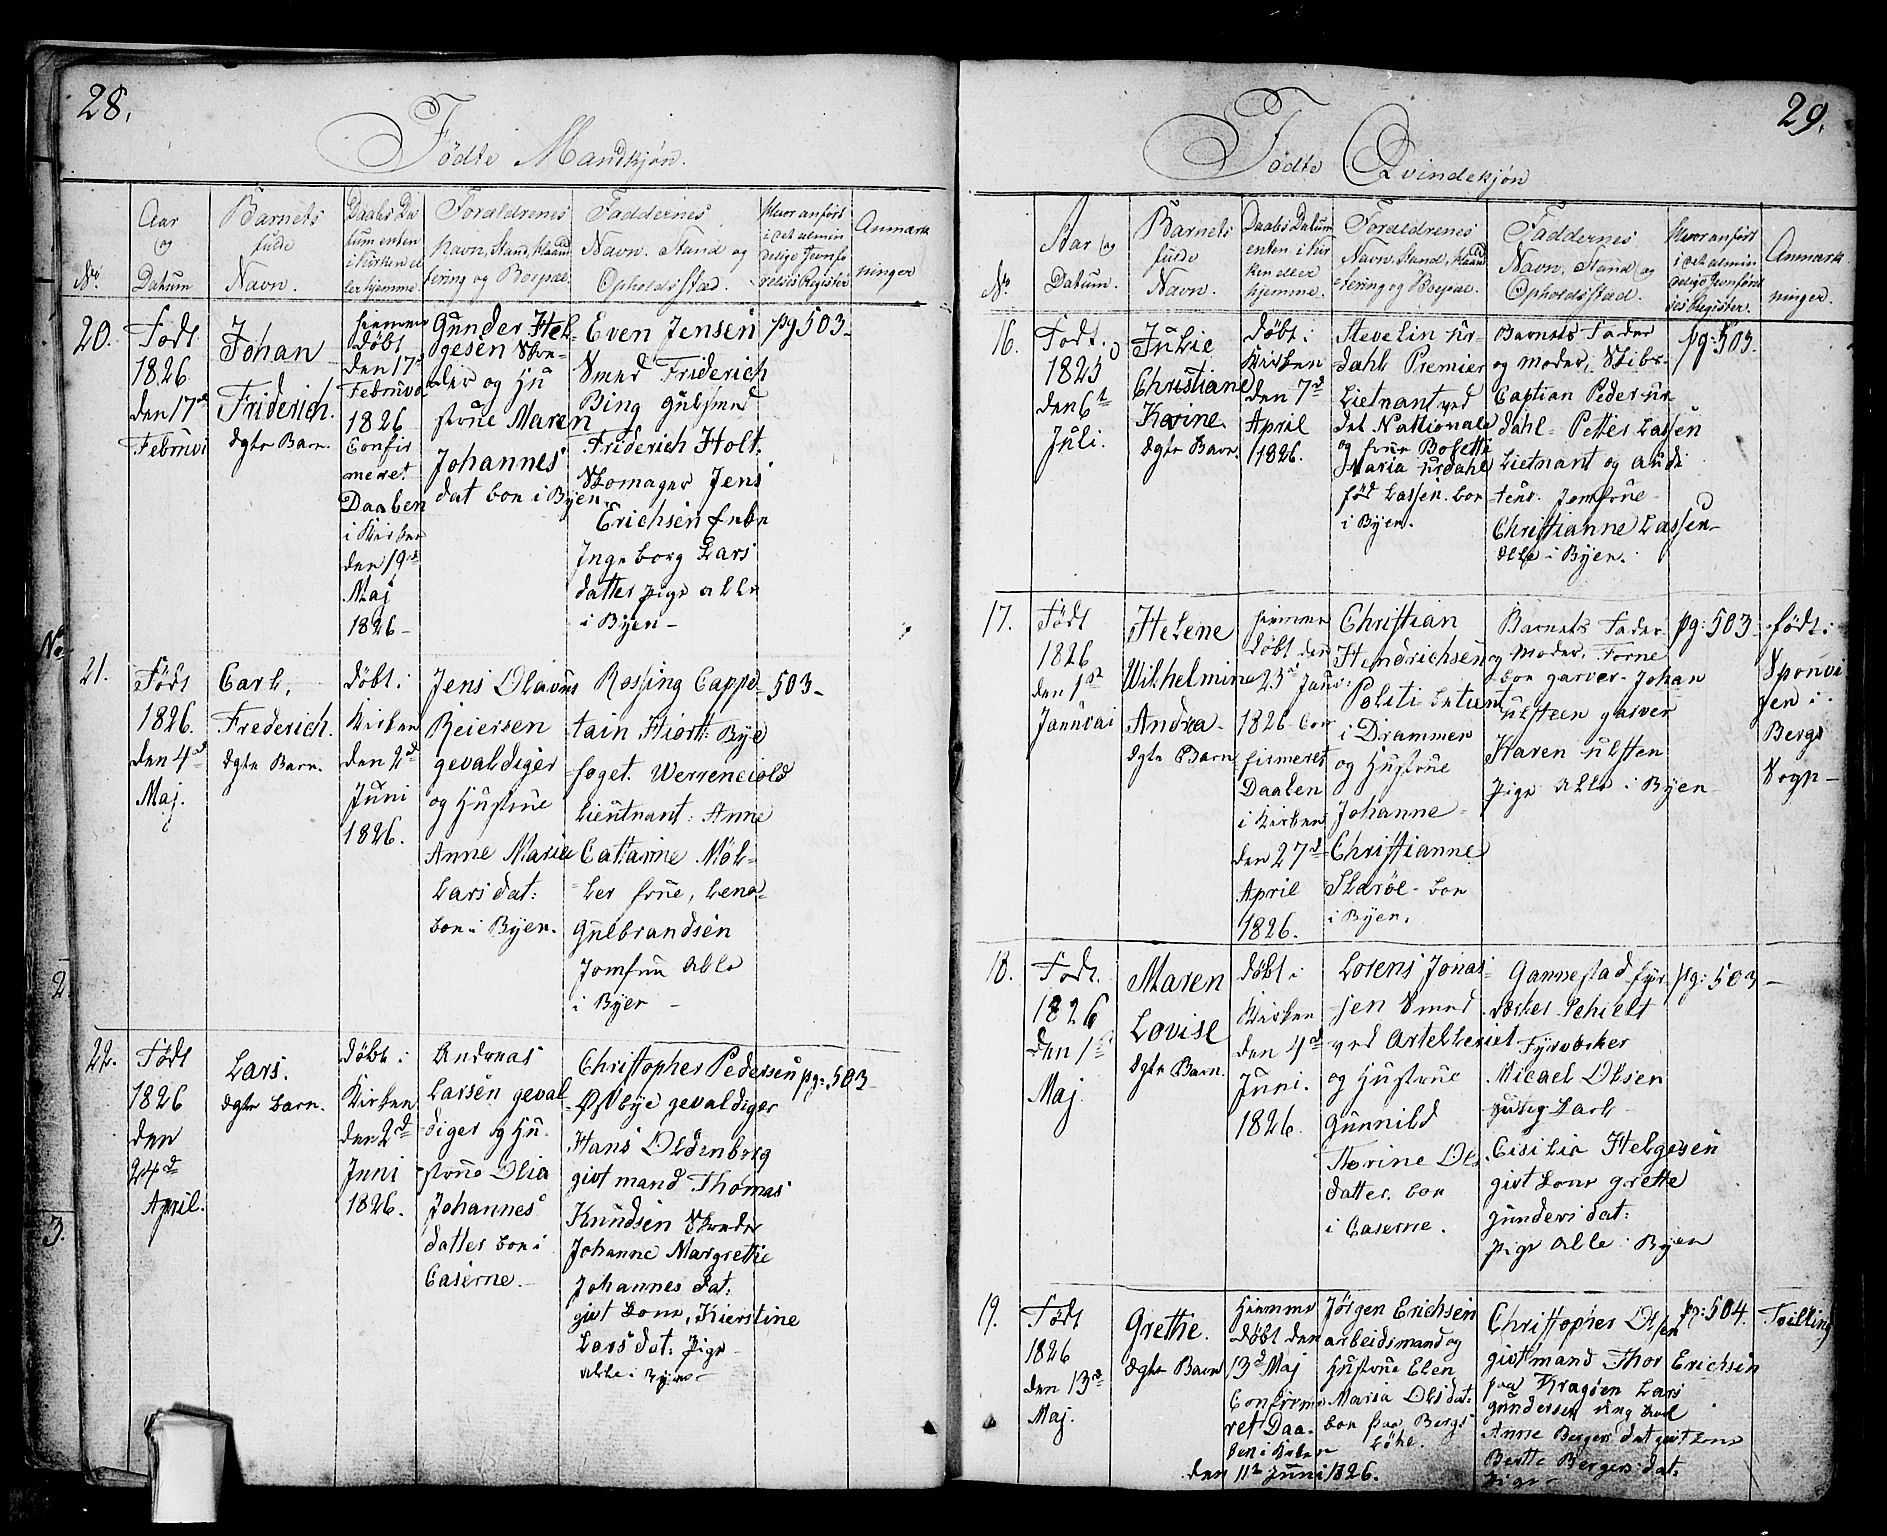 28.
Fødte Mandkjøn.
No.
Aar
og
Datum
Barnets
fulde
Navn.
Daabs Da
tum enten
i Kirken el
ler hjemme.
Forældrenes
Navn, Stand, Haand
tering og Boepæl
Faddernes
Navn. Stand og
Opholdsstæd.
Hvor anført
i det almin
delige Jevnfø
relses Register
Anmærk
ninger
20.
Født
1826
den 17d
Februvi
Johan
Friderich.
ægte Barn.
hiemme
døbt
den 17d
Februva
1826
Confir
meret
Daaben
i Kirken
den 19d
Maj
1826-
Gunder Hel
gesen
og Hu
strue Maren
Johannes
dat boe i Byen.
Even Jensen
Smed Friderich
Bing gulsmed
Friderich Holt.
Skomager Jens
Erichsen Enke
Ingeborg Lars
datter pige alle
i Byen-
pg 503-
21.
Født
1826.
den 4d
Maj.
Carl,
Frederich.
ægte Barn.
døbt i
Kirken
den 2d
Juni
1826.
Jens Olavus
Reiersen
gevaldiger
og Hustrue
Anne Marie
Lars dat:
boe i Byen.
Rossing Cappe-
tain Hiort: Bye
foget. Werrenciold
Lieutnant: Anne
Cattarine Møl-
ler frue, Lene-
Gulbrandsen
Jomfru alle
i Byen-
503-
22.
Født
1826
den
24d
April.
Lars.
ægte barn.
døbt i
Kirken
den 2d
Juni
1826.
Andreas
Larsen geval
diger og Hu-
strue Olia
Johannes
datter boe i
Caserne.
Christopher Pedersen
Østbye gevaldiger
Hans Oldenborg
givt mand Thomas
Knudsen
Johanne Margrethe
Johannes dat:
givt kone, Kierstine
Lars dat: Pige
alle i Byen-
pg: 503-
29.
Fødte Qvindekjøn
No
Aar og
Datum.
Barnets
fulde
Navn.
Daabs Datum
enten i Kir
ken eller
hjemme.
Forældrenes
Navn, Stand, Haand
tering og Boepæl.
Faddernes
Navn, Stand og
Opholdsstæd.
Hvor anført
i det almin
delige Jevnførel
ses Register.
Anmærk
ninger.
16.
Født.
1825
den 6t
Juli.
Julie
Christiane
Karine.
ægte Barn.
døbt i
Kirken
den 7d
April
1826.
Stevelin Ur
dahl Premier
Lietnant ved
det Nattionale
og frue Bolette
Maria Urdahl
fød Lassen. boe
i Byen.
Barnets Fader
og moder,
Captian Peder Ur
dahl- Petter Lassen
Lietnant og Audi
teur. Jomfrue-
Christianne Lassen-
alle i Byen.
pg: 503-
17.
Født
1826
den 1st
Januvai
Helene
Wilhelmine
Andrea-
ægte Barn
hiemme
døbt den
23d Janv:
1826- Con
firmeret
Daaben
i Kirken
den 27d
April
1826.
Christian
Hendrichsen
Politi betient
i Drammen
og Hustrue
Johanne-
Christianne
Skarøe- boe
i Byen.
Barnets Fader
og Moder,
boe garver- Johan
Ulsteen garver
Karen Ulsten
Pige Alle i Byen-
pg: 503-
født i
Sponvi
gen i
Bergs
Sogn-
18.
Født.
1826
den 1st
Maj.
Maren
Lovise
ægte Barn.
døbt i
Kirken
den 4d
Juni.
1826.
Lorens Jonas-
sen Smed
ved Artelleriet
og Hustrue
Gunnild
Torine Ols
datter. boe
i Caserne.
Gannestad fyr
værker Schielt
Fyrværker
Micael Olsen
Cisilia Helgesen
givt kone grette
gunders dat:
pige alle i Byen
pg: 503-
19.
Født
1826
den 13d
Maj.
Grethe.
ægte Barn
Hiemme
døbt den
13d Maj
Confirme
ret Daa
ben i Kirken
den 11te Juni 1826.
Jörgen Erichsen
arbeidsmand og
Hustrue Elen
Maria Ols dat:
boe paa Bergs
Löhe.
Christopher Olsen
givt mand Thor Erichsen
paa Kragøen Lars
gundersen ung karl
Anne Bergers dat givt kone
Berthe Bergers dat:
Pige-
pg: 504.
Tvilling